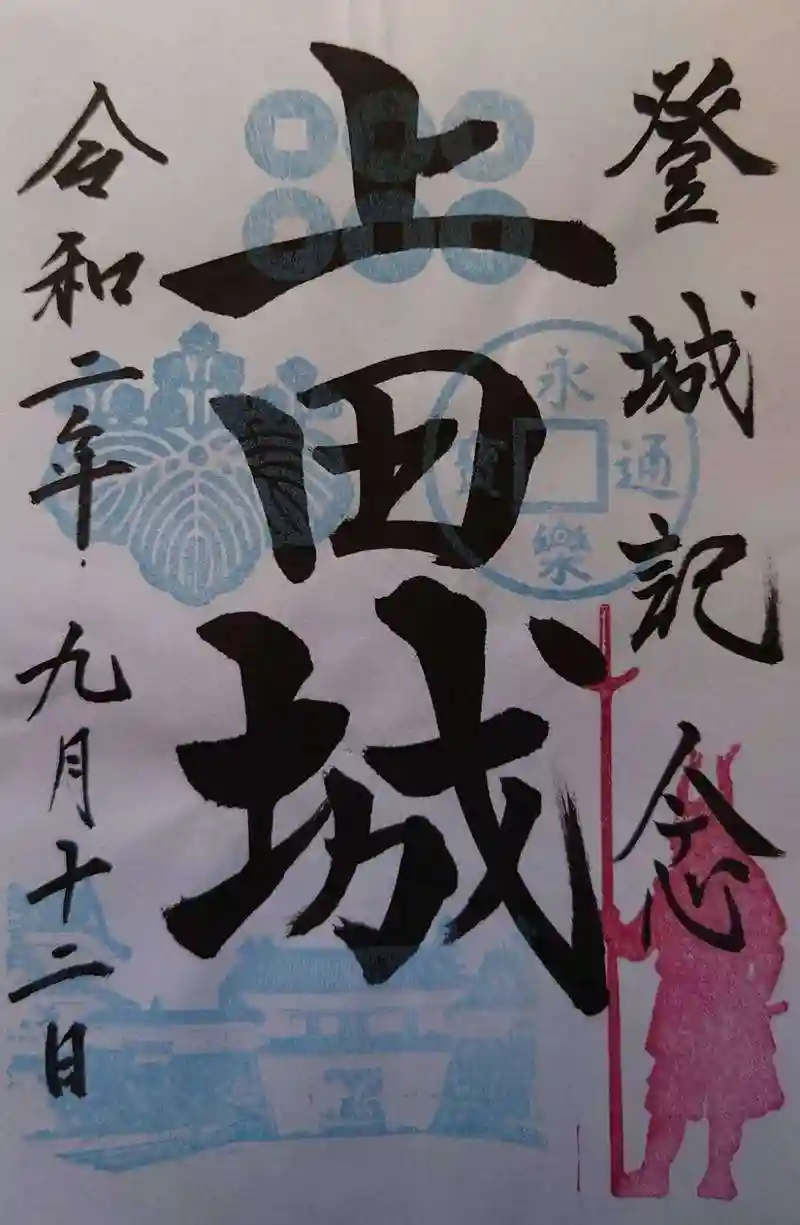 登城記念
上田城
永樂通寳
令和二年九月十二日